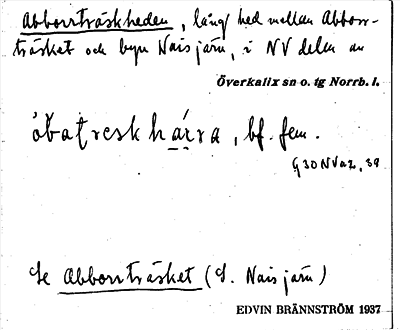 Abborrträskheden, lång hed mellan Abborr-
träsket och byn Naisjärv, i NV delen av
Överkalix sn o. tg Norrb. l.
åbatreskhárra, bf. fem.
G 30 NV a 2, 39
Se Abborrträsket (S. Naisjärv)
EDVIN BRÄNNSTRÖM 1937